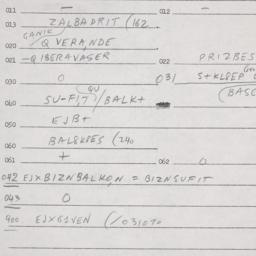 011 — 012 —
013 ZALBADRIT (162
GANIK
020 Q VERANDE
021 -QIBERAVASER 022 PRIZBES
030 0 031 S+KLEEP
QU (BASC
040 SU-FIT / BALK+
050 EJB+
060 BALEKBES (240
061 + 062 0
042 EJXBIZNBALKON = BIZNSUFIT
043 0
400 EJXBIVEN (/031070